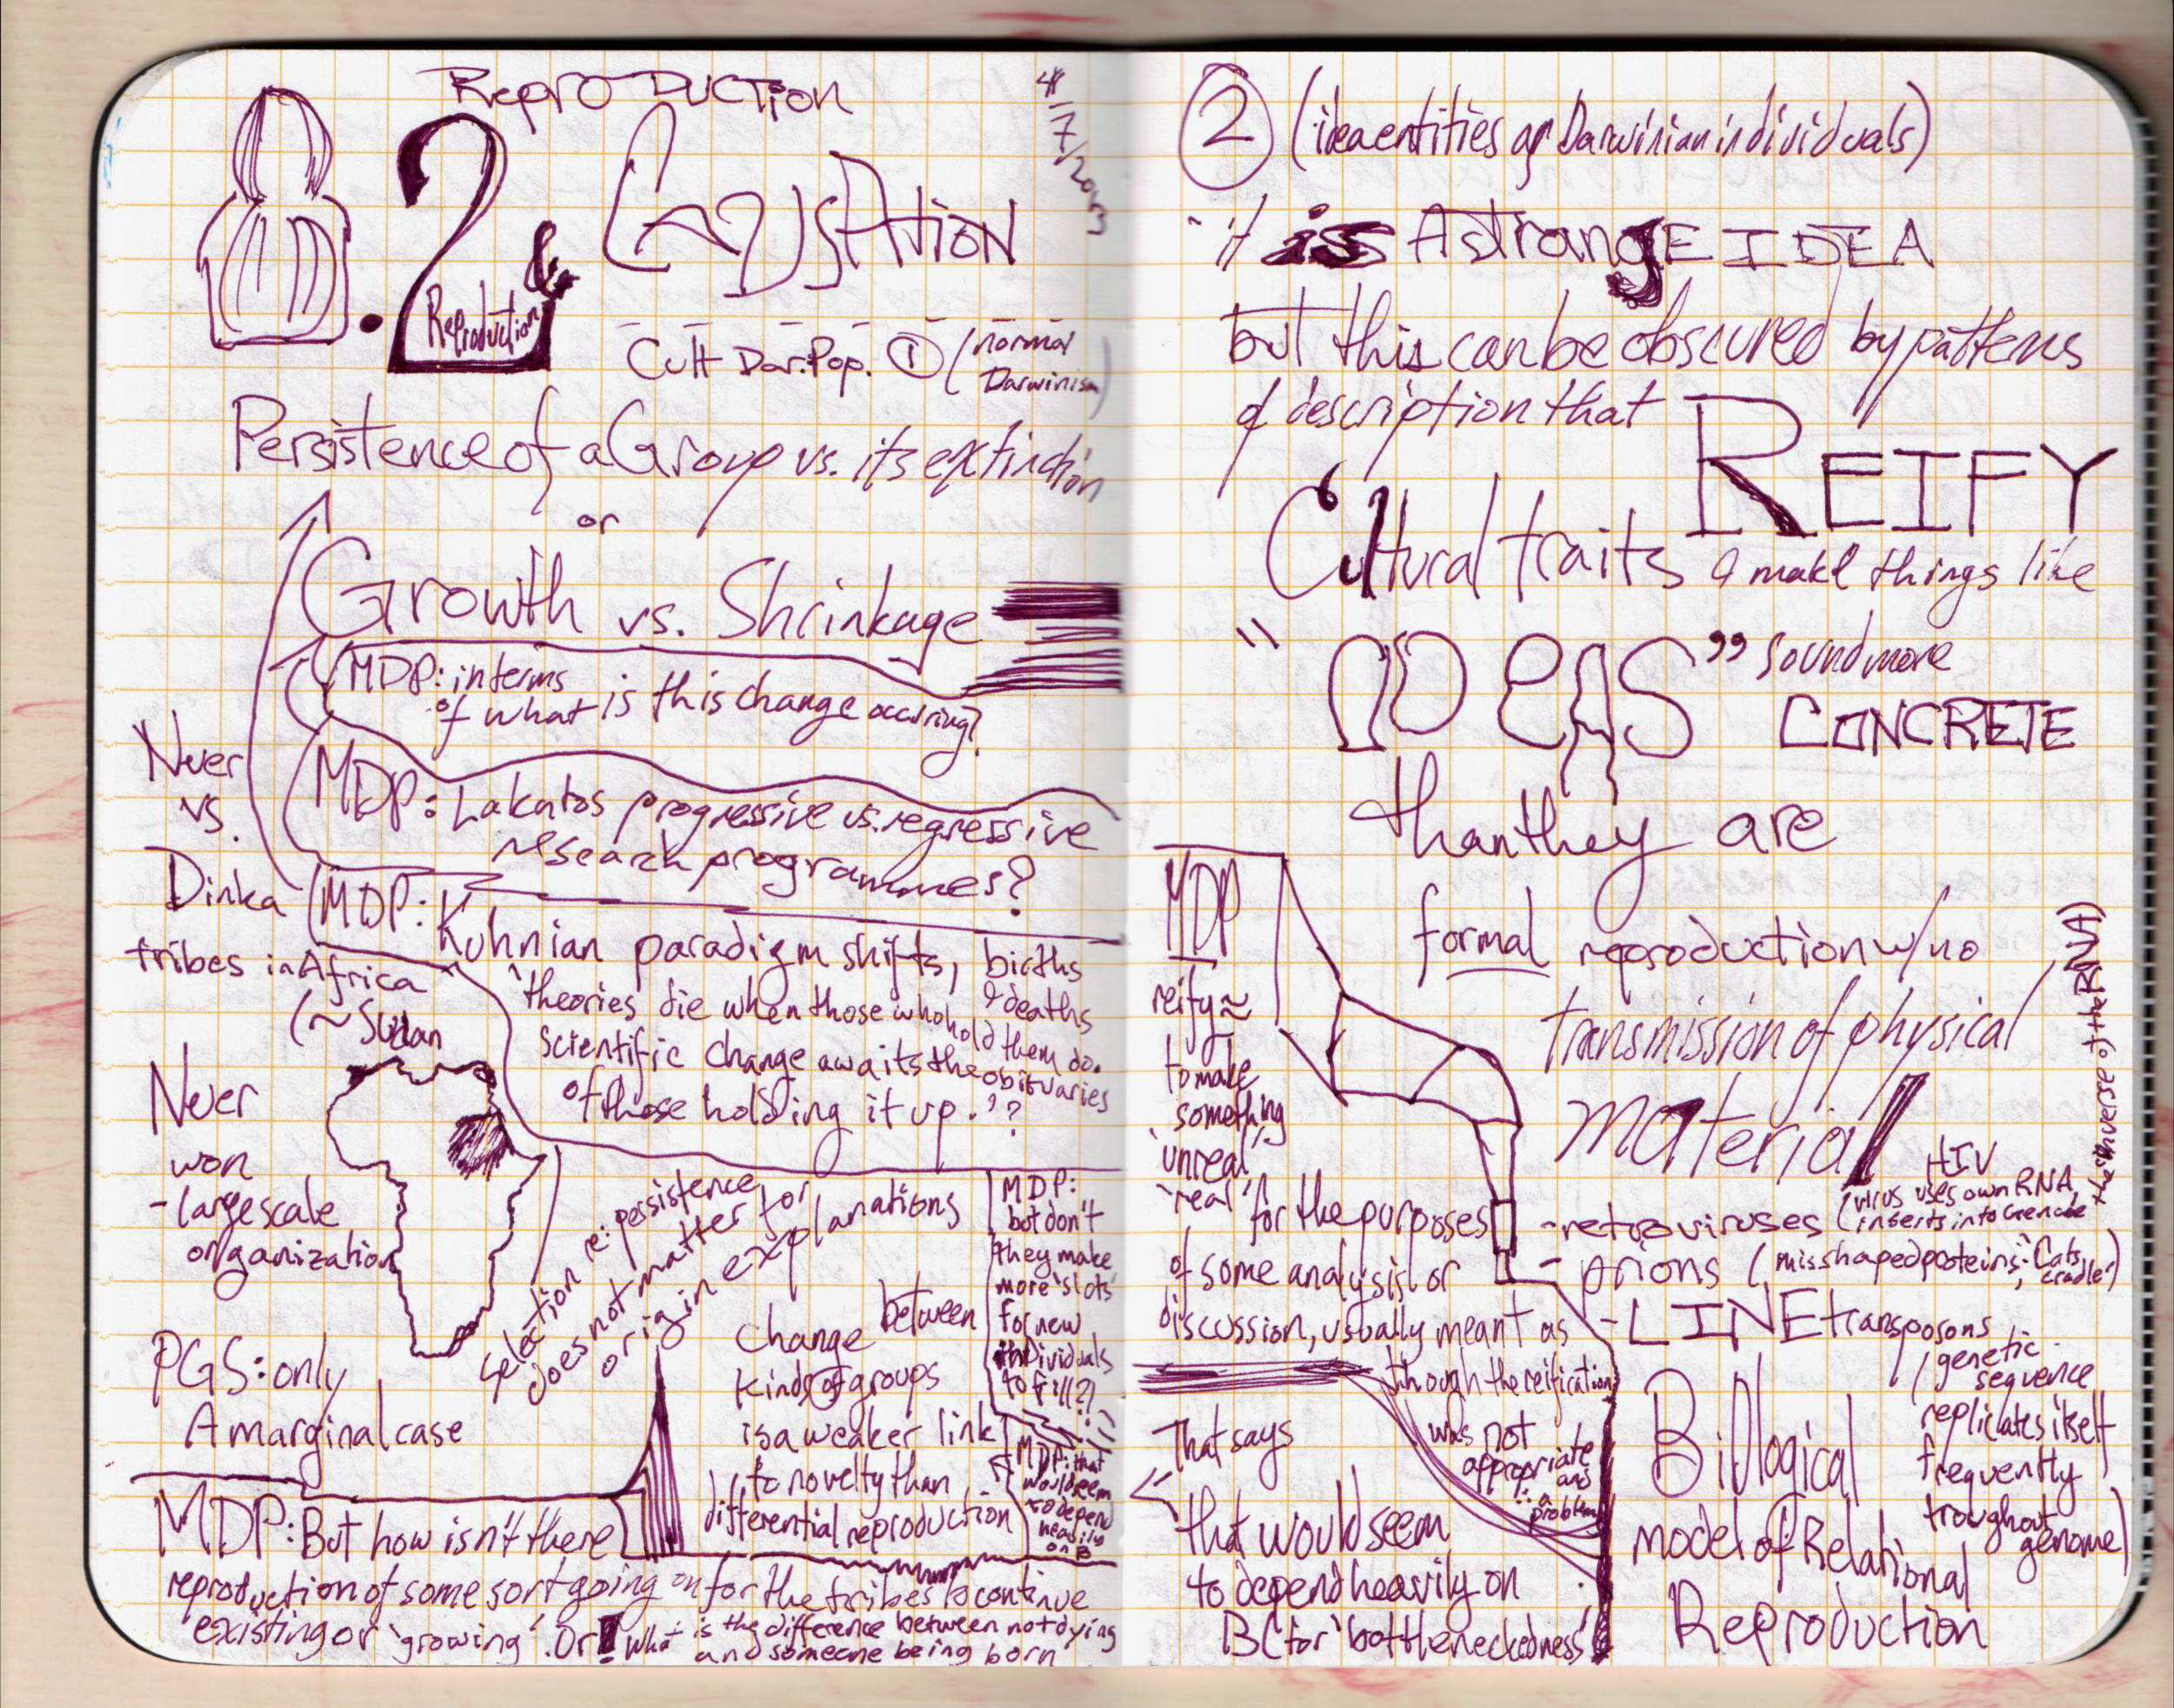 REPRODUCTION
4/7/2013
8.2 & CAUSATION
Reproduction
Cult Dar. Pop. ① (normal
Darwinism)
Persistence of a Group vs. its extinction
or
Growth vs. Shrinkage
MDP: in terms
of what is this change occuring?
MDP: Lakatos progressive vs. regressive
research programmes?
Nuer
vs.
Dinka
tribes in Africa
(~Sudan
MDP: Kuhnian paradigm shifts, births
& deaths
'theories die when those who hold them do.
Scientific change awaits the obituaries
of those holding it up.'?
Nuer
won
- large scale
organization
PGS: only
A marginal case
selection re: persistence
does not matter for
origin explanations
Change between
kinds of groups
is a weaker link
to novelty than
differential reproduction
MDP:
but don't
they make
more 'slots'
for new
individuals
to fill?
MDP: that
would seem
to depend
heavily
on B
MDP: But how isn't there
reproduction of some sort going on for the tribes to continue
existing or 'growing'. Or! What is the difference between not dying
and someone being born
② (idea entities as Darwinian individuals)
"it is A strangE IDEA
but this can be obscured by patterns
of description that REIFY
Cultural traits & make things like
"IDEAS" sound more
CONCRETE
than they are
MDP
reify ≈
to make
something
'unreal'
'real' for the purposes
of some analysis or
discussion, usually meant as
though the reification
was not
appropriate
and
∴ a
problem
formal reproduction w/no
transmission of physical
material
- retroviruses (HIV
virus uses own RNA,
inserts into Genome
the inverse of the RNA)
- prions (misshaped proteins; 'Cats
cradle')
- LINE transposons
(genetic
sequence
replicates itself
frequently
troughout
genome)
Biological
model of Relational
Reproduction
That says
that would seem
to depend heavily on
B (for 'bottleneckedness')